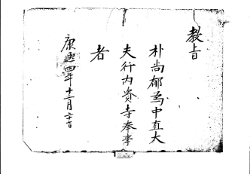 教旨
朴尚郁為中直大
夫行內資寺奉事
者
康熙四年十二月十二日